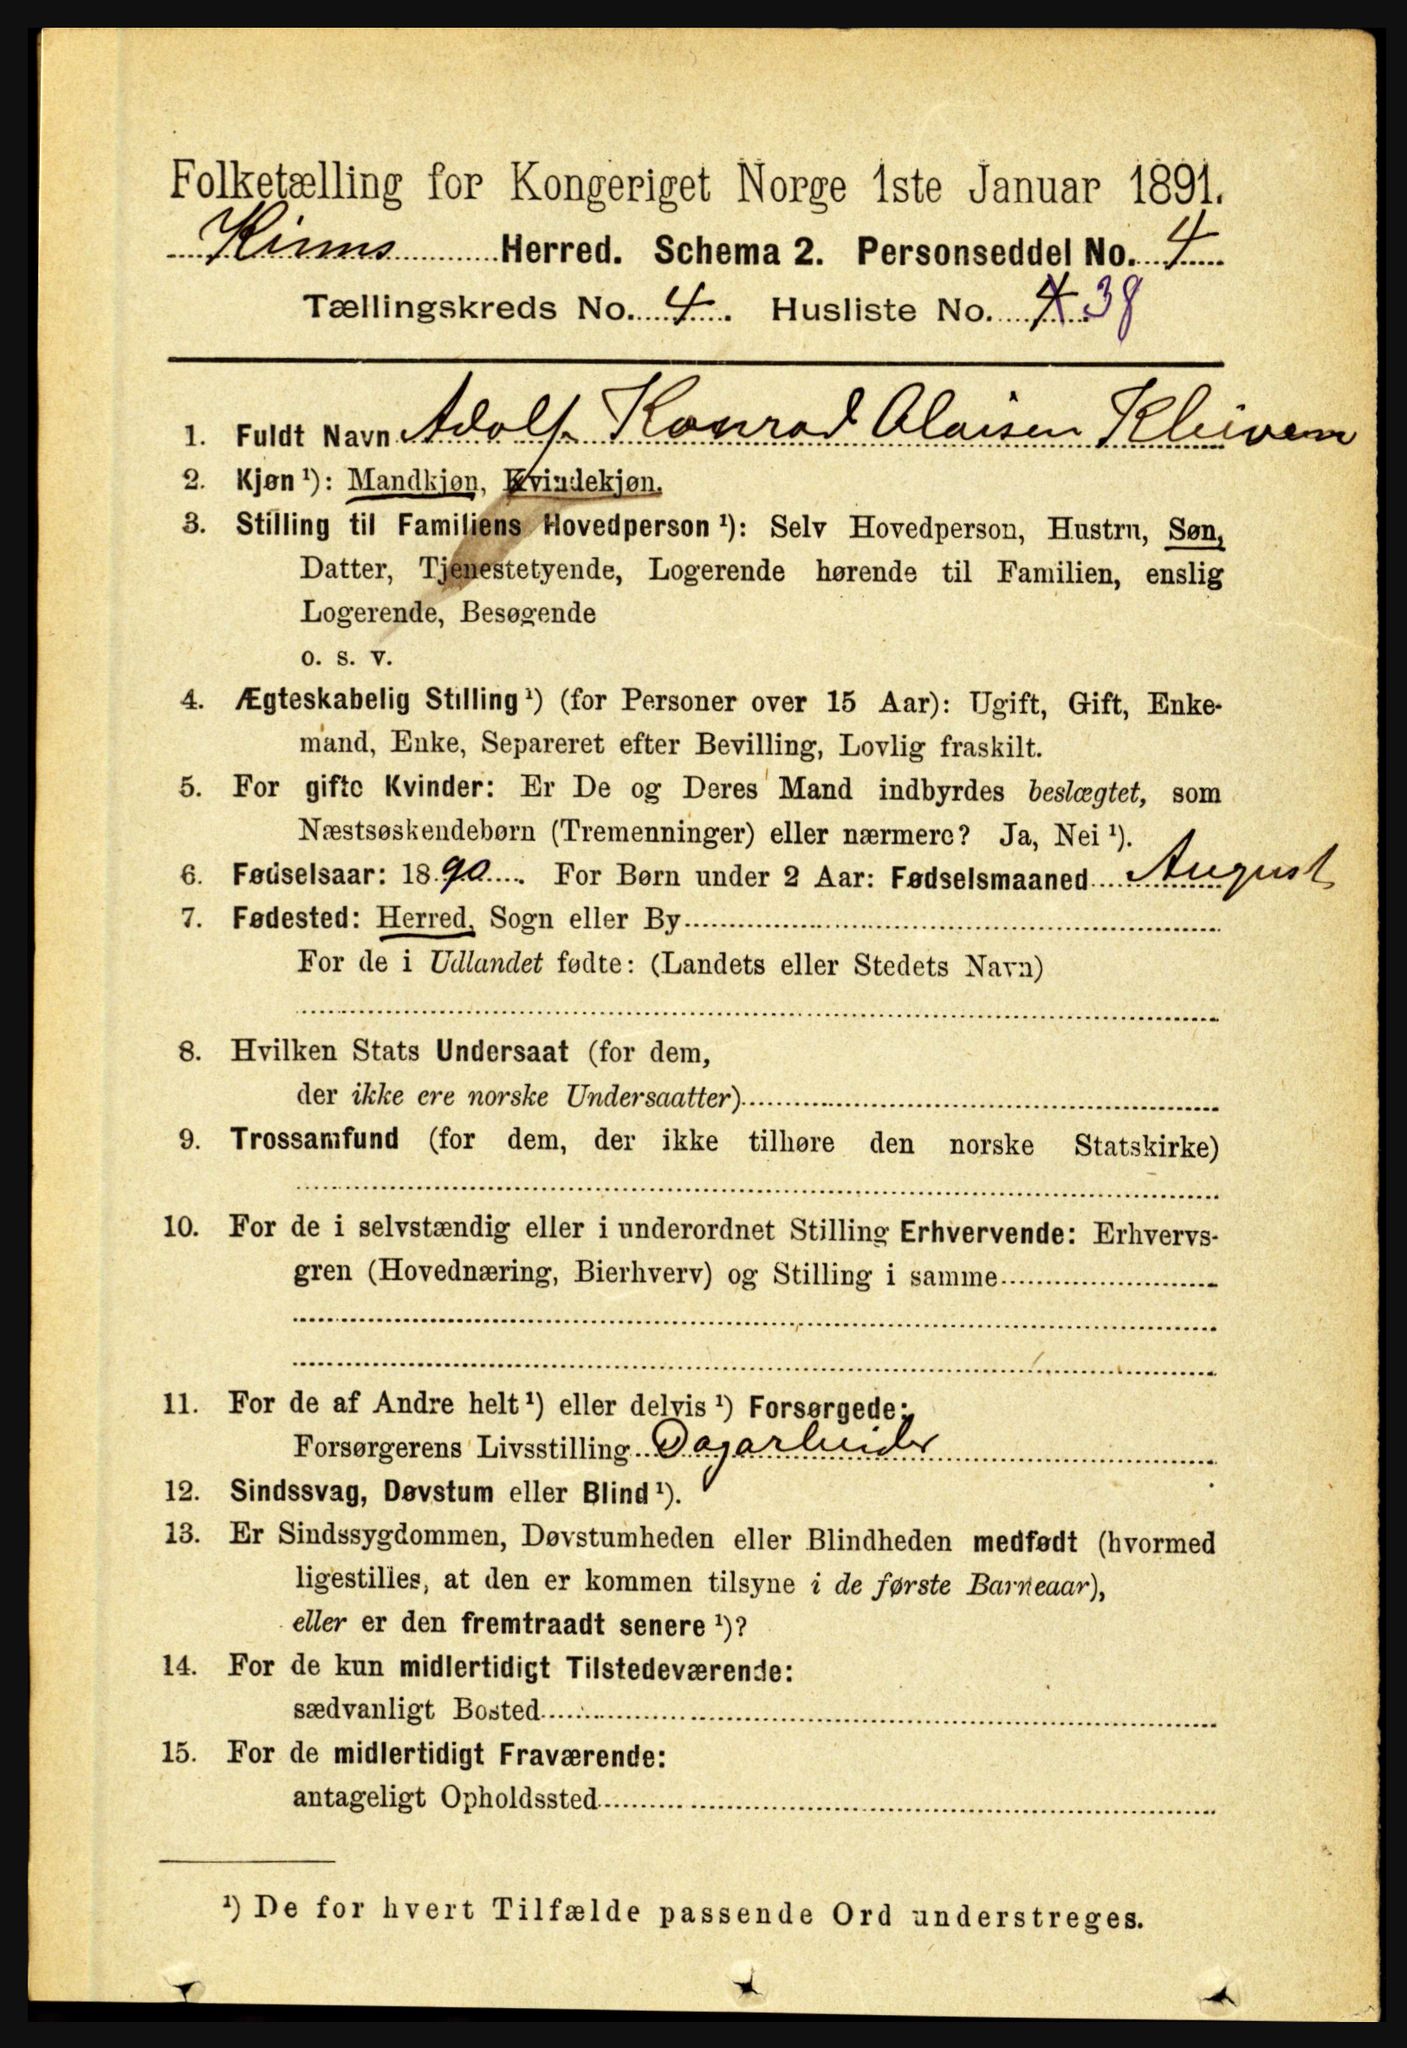 Folketælling for Kongeriget Norge 1ste Januar 1891.
Kinns Herred. Schema 2. Personseddel No. 4
Tællingskreds No. 4. Husliste No. 4 38
1. Fuldt Navn Adolf Konrad Olaisen Kleiven
2. Kjøn ¹): Mandkjøn, Kvindekjøn.
3. Stilling til Familiens Hovedperson ¹): Selv Hovedperson, Hustru, Søn,
Datter, Tjenestetyende, Logerende hørende til Familien, enslig
Logerende, Besøgende
o. s. v.
4. Ægteskabelig Stilling ¹) (for Personer over 15 Aar): Ugift, Gift, Enke-
mand, Enke, Separeret efter Bevilling, Lovlig fraskilt.
5. For gifte Kvinder: Er De og Deres Mand indbyrdes beslægtet, som
Næstsøskendebørn (Tremenninger) eller nærmere? Ja, Nei ¹).
6. Fødselsaar: 1890. For Børn under 2 Aar: Fødselsmaaned August
7. Fødested: Herred, Sogn eller By
For de i Udlandet fødte: (Landets eller Stedets Navn)
8. Hvilken Stats Undersaat (for dem,
der ikke ere norske Undersaatter)
9. Trossamfund (for dem, der ikke tilhøre den norske Statskirke)
10. For de i selvstændig eller i underordnet Stilling Erhvervende: Erhvervs-
gren (Hovednæring, Bierhverv) og Stilling i samme
11. For de af Andre helt ¹) eller delvis ¹) Forsørgede:
Forsørgerens Livsstilling Dagarbeider
12. Sindssvag, Døvstum eller Blind ¹).
13. Er Sindssygdommen, Døvstumheden eller Blindheden medfødt (hvormed
ligestilles, at den er kommen tilsyne i de første Barneaar),
eller er den fremtraadt senere ¹)?
14. For de kun midlertidigt Tilstedeværende:
sædvanligt Bosted
15. For de midlertidigt Fraværende:
antageligt Opholdssted
¹) De for hvert Tilfælde passende Ord understreges.